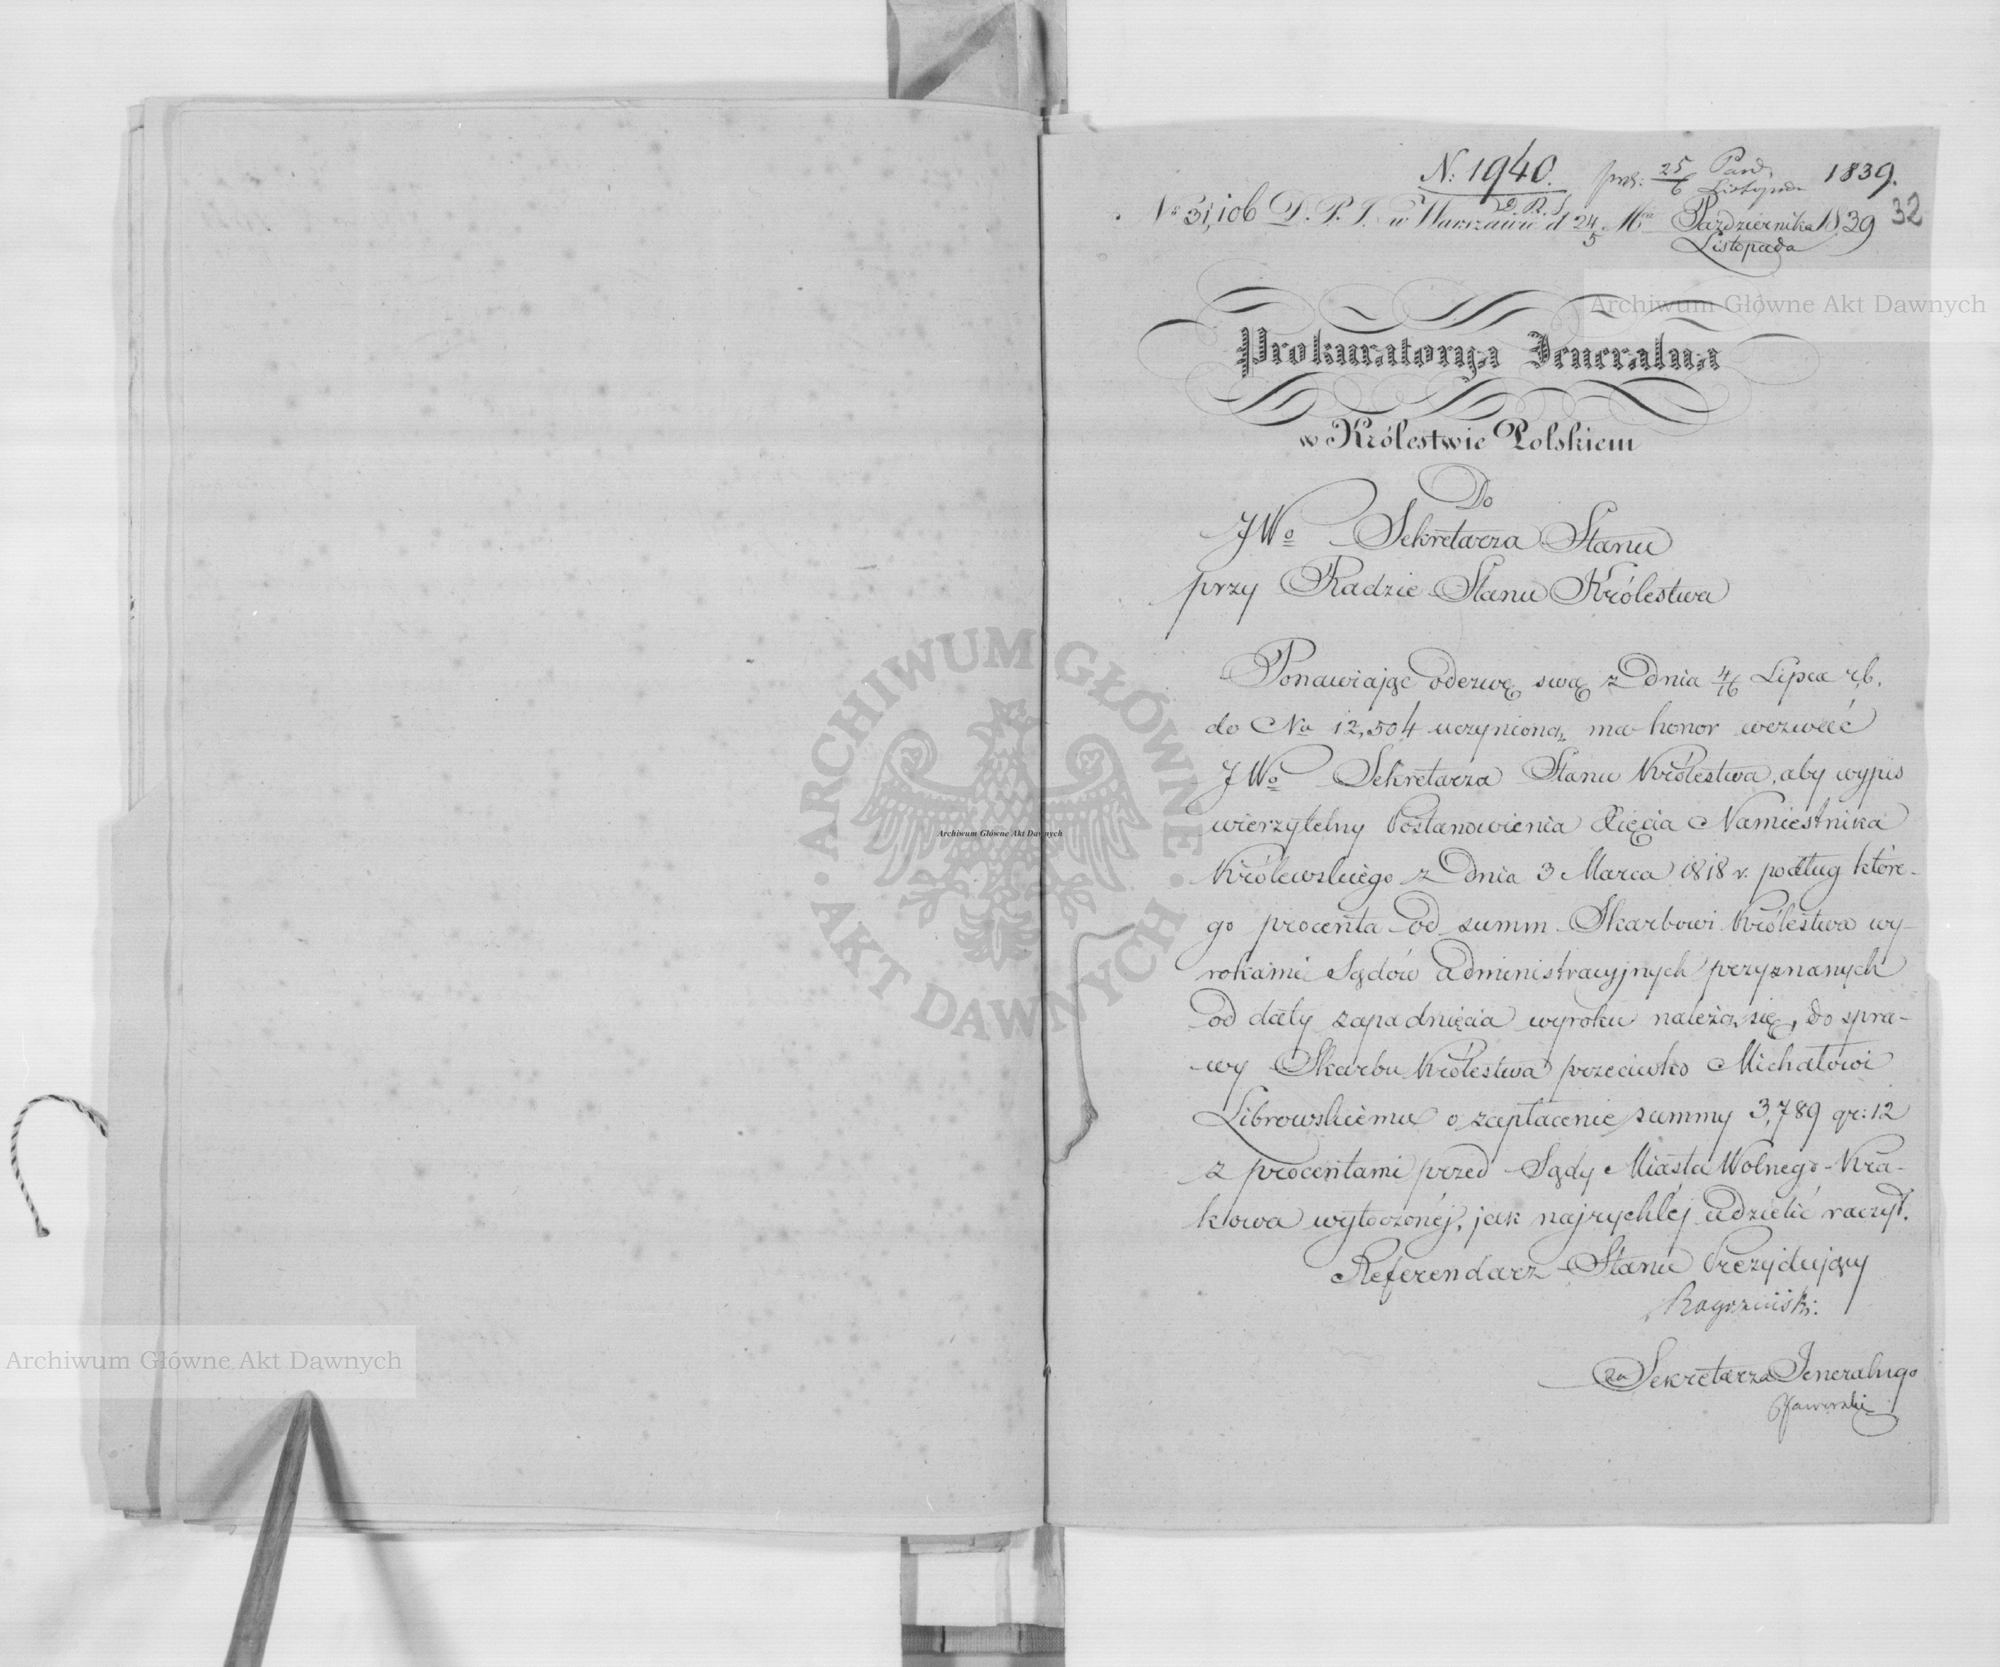 N: 1940. 25/6 Paźd. Listopada 1839.
D.R.S.
Nr 31,106 D. P. J. w Warszawie d 24/5 Mca Października Listopada 1839
32
Prokuratorya Jeneralna
w Królestwie Polskiem
Do
JWo Sekretarza Stanu
przy Radzie Stanu Królestwa
Ponawiając odezwę swą z dnia 4/16 Lipca r.b.
do Na 12,504 uczynioną, ma honor wezwać
JWo Sekretarza Stanu Królestwa, aby wypis
wierzytelny Postanowienia Xięcia Namiestnika
Królewskiego z dnia 3 Marca 1818 r. podług które-
go procenta od summ Skarbowi Królestwa wy-
rokami Sądów Administracyjnych przyznanych
od daty zapadnięcia wyroku należą się, do spra-
wy Skarbu Królestwa przeciwko Michałowi
Librowskiemu o zapłacenie summy 3,789 gr: 12
z procentami przed Sądy Miasta Wolnego Kra-
kowa wytoczonéj, jak najrychléj udzielić raczył.
Referendarz Stanu Prezydujący
za Sekretarza Jeneralnego
Archiwum Główne Akt Dawnych
Archiwum Główne Akt Dawnych
Archiwum Główne Akt Dawnych
ARCHIWUM GŁÓWNE AKT DAWNYCH